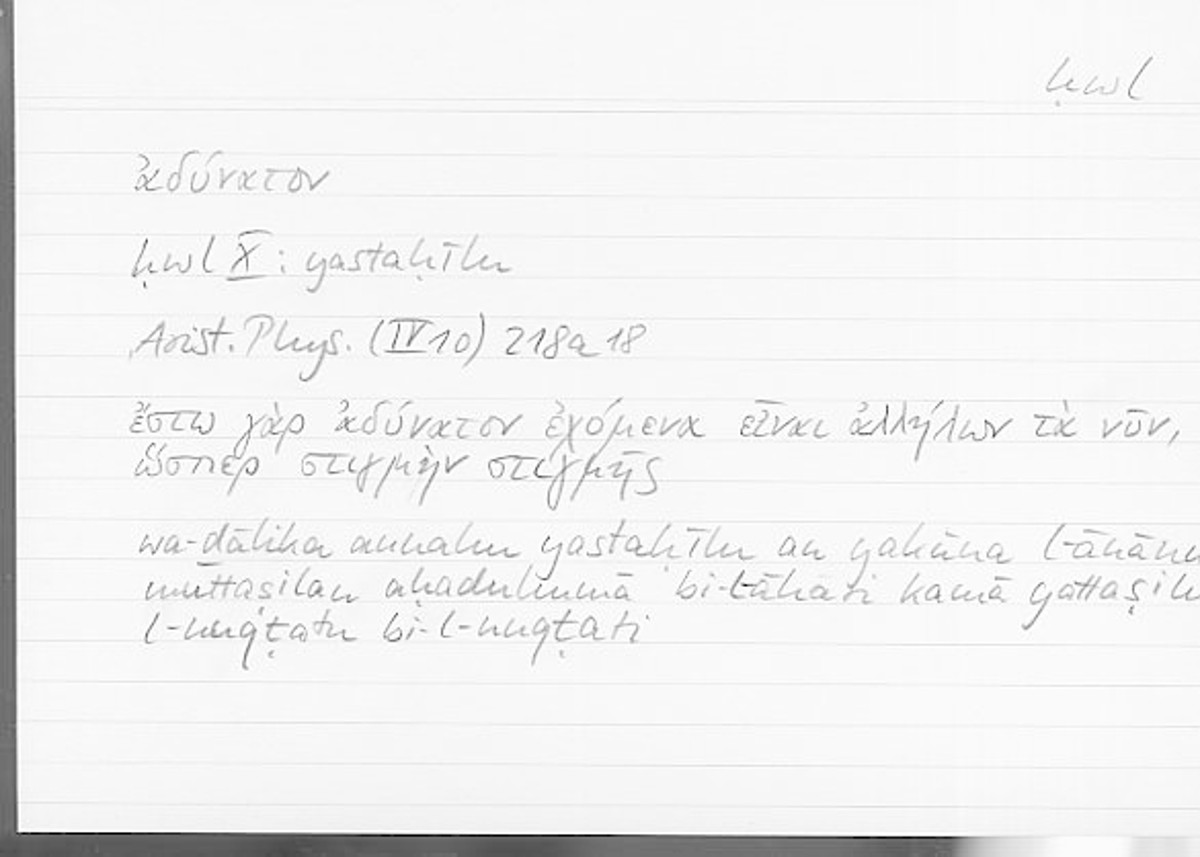 ḥwl
ἀδύνατον
ḥwl X : yastaḥīlu
Arist. Phys. (IV 10) 218a 18
ἔστω γὰρ ἀδύνατον ἐχόμενα εἶναι ἀλλήλων τὰ νῦν,
ὥσπερ στιγμὴν στιγμῆς
wa-ḏālika annahu yastaḥīlu an yakūna l-ānānu
muttaṣilan aḥaduhumā bi-l-āḫari kamā yattaṣilu
l-nuqṭatu bi-l-nuqṭati